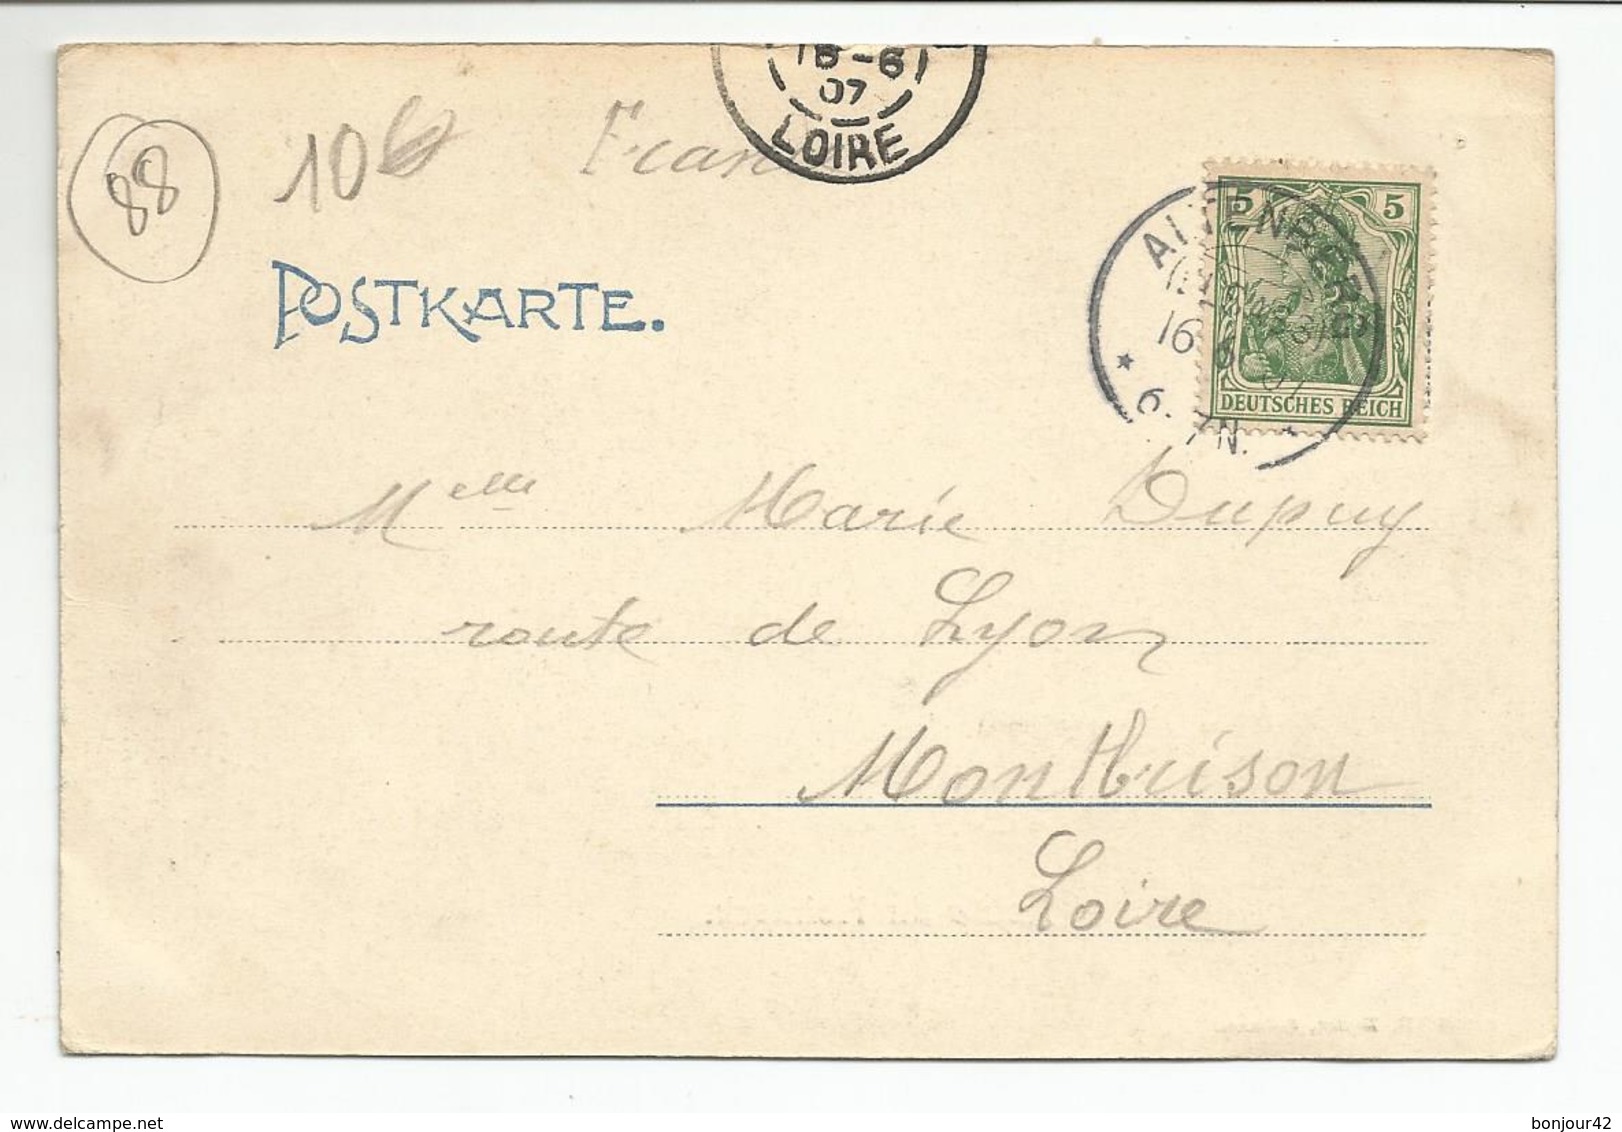 18-6
07
LOIRE
88
10
Fran
5 5
ALTENBERG
16 6 07
6-7N.
DEUTSCHES REICH
POSTKARTE.
Melle Marie Dupuy
route de Lyon
Montbrison
Loire
bonjour42